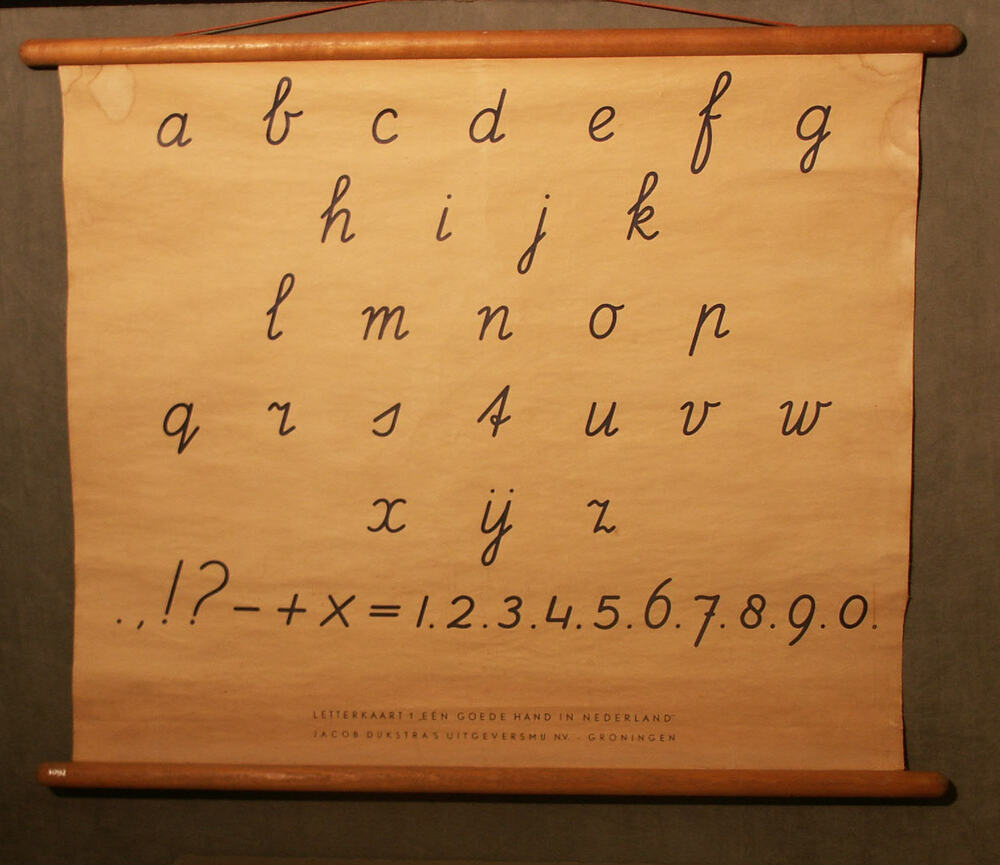 a b c d e f g
h i j k
l m n o p
q r s t u v w
x ij z
. , ! ? - + x = 1. 2. 3. 4. 5. 6. 7. 8. 9. 0.
LETTERKAART 1 „EÉN GOEDE HAND IN NEDERLAND"
JACOB DIJKSTRA'S UITGEVERSMIJ N.V. - GRONINGEN